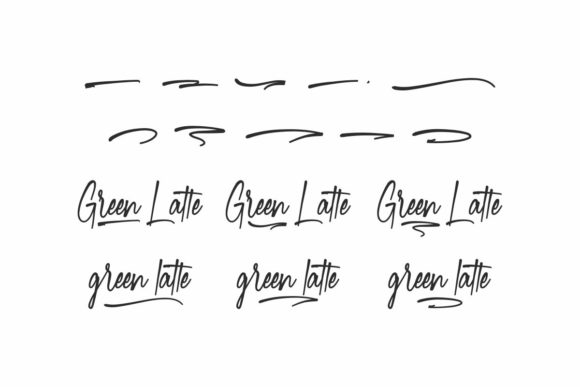 Green Latte Green Latte Green Latte
green latte green latte green latte